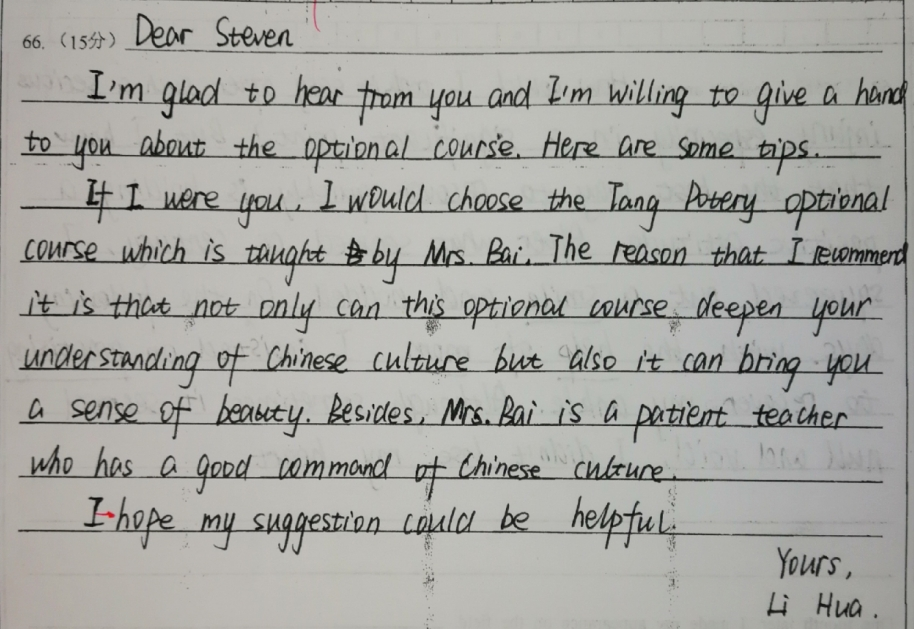 66. (15分) Dear Steven
I'm glad to hear from you and I'm willing to give a hand
to you about the optional course. Here are some tips.
If I were you, I would choose the Tang Potery optional
course which is taught by Mrs. Bai. The reason that I recommend
it is that not only can this optional course deepen your
understanding of Chinese culture but also it can bring you
a sense of beauty. Besides, Mrs. Bai is a patient teacher
who has a good command of Chinese culture.
I hope my suggestion could be helpful.
Yours,
Li Hua.